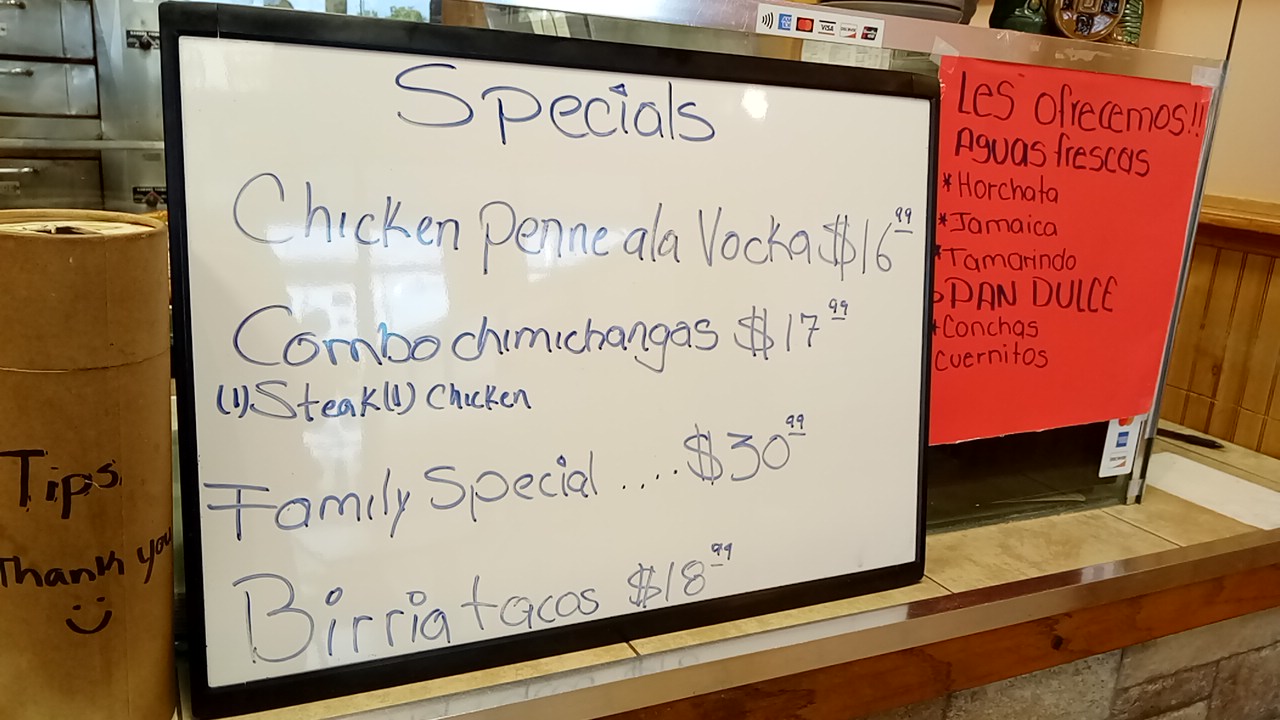 Specials
Chicken Penne ala Vocka $16 99
Combo chimichangas $17 99
(1) Steak (1) Chicken
Family Special ... $30 99
Birria tacos $18 99
Les ofrecemos!!
Aguas frescas
*Horchata
*Jamaica
*Tamarindo
PAN DULCE
*Conchas
Cuernitos
Tips
Thank you
VISA